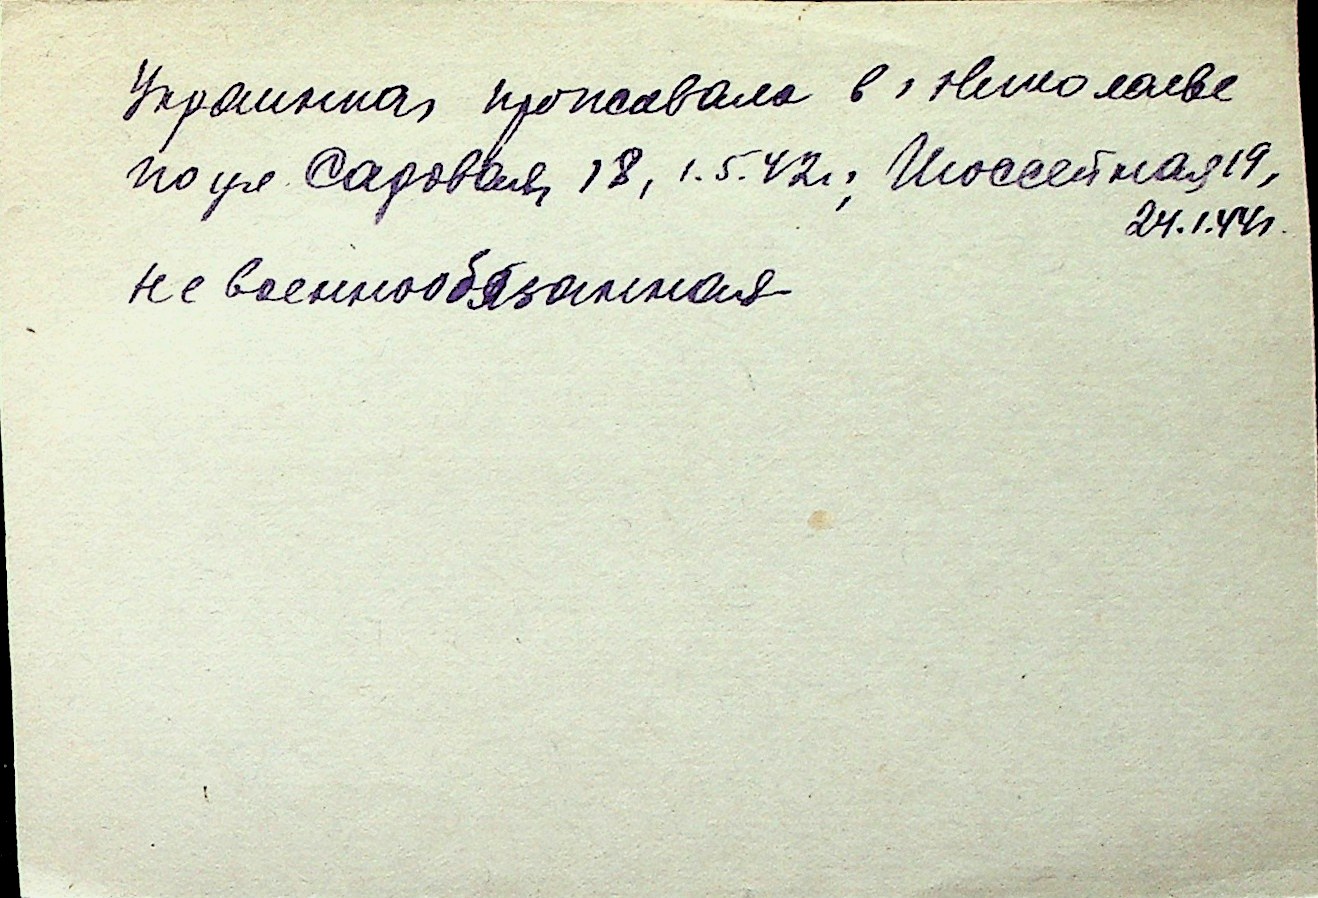 Украинка, проживала в г. Николаеве
по ул. Садовая, 18, 1.5.42г.; Шоссейная 19,
24.1.44г.
не военнообязанная